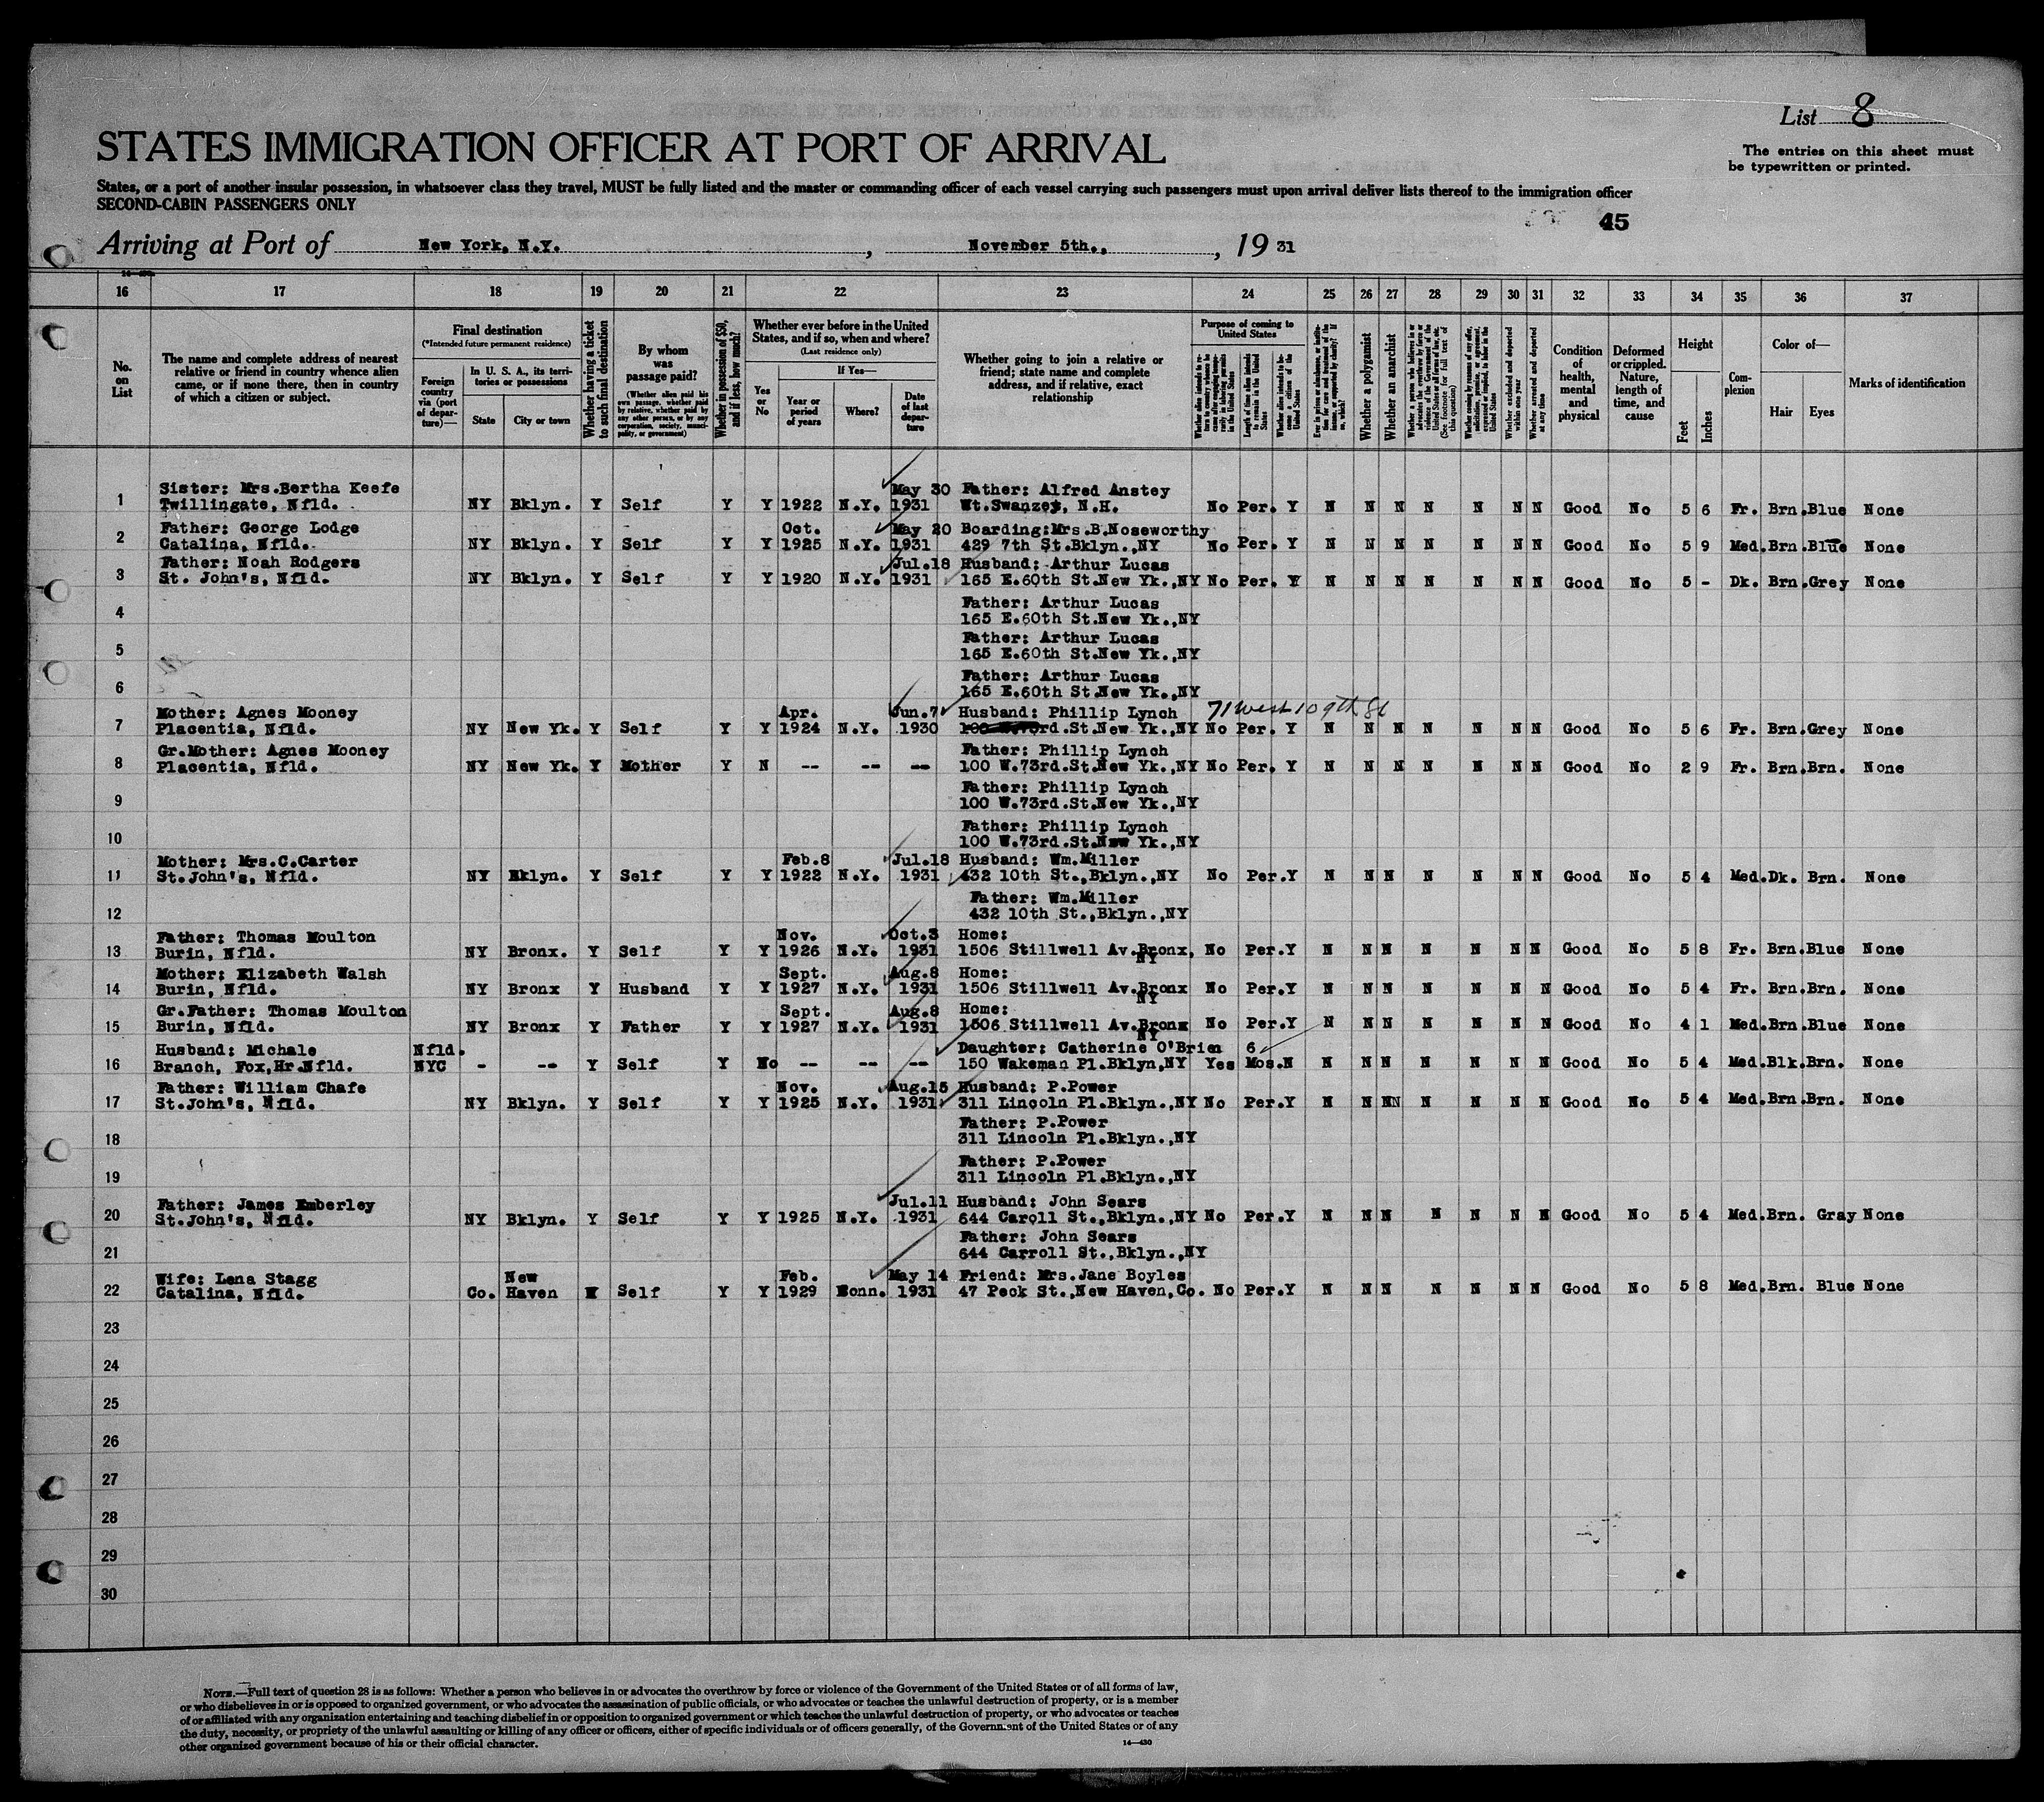 List 8
STATES IMMIGRATION OFFICER AT PORT OF ARRIVAL
The entries on this sheet must
be typewritten or printed.
States, or a port of another insular possession, in whatsoever class they travel, MUST be fully listed and the master or commanding officer of each vessel carrying such passengers must upon arrival deliver lists thereof to the immigration officer
SECOND-CABIN PASSENGERS ONLY
45
Arriving at Port of New York, N.Y. , November 5th., , 19 31
16 17 18 19 20 21 22 23 24 25 26 27 28 29 30 31 32 33 34 35 36 37
No. on List
The name and complete address of nearest relative or friend in country whence alien came, or if none there, then in country of which a citizen or subject.
Final destination
(*Intended future permanent residence)
Foreign country via (port of departure)—
In U. S. A., its territories or possessions
State
City or town
Whether having a ticket to such final destination
By whom was passage paid?
(Whether alien paid his own passage, whether paid by relative, whether paid by any other person, or by any corporation, society, municipality, or government)
Whether in possession of $50, and if less, how much?
Whether ever before in the United States, and if so, when and where?
(Last residence only)
Yes or No
If Yes—
Year or period of years
Where?
Date of last departure
Whether going to join a relative or friend; state name and complete address, and if relative, exact relationship
Purpose of coming to United States
Length of time alien intends to remain in the United States
Whether alien intends to become a citizen of the United States
Whether a polygamist
Whether an anarchist
Whether excluded and deported within one year
Whether arrested and deported at any time
Condition of health, mental and physical
Deformed or crippled. Nature, length of time, and cause
Height
Feet
Inches
Complexion
Color of—
Hair
Eyes
Marks of identification
Sister: Mrs.Bertha Keefe May 30 Father: Alfred Anstey
1 Twillingate, Nfld. NY Bklyn. Y Self Y Y 1922 N.Y. 1931 Wt.Swanzey, N.H. No Per. Y N N N N N N N Good No 5 6 Fr. Brn.Blue None
Father: George Lodge Oct. May 20 Boarding:Mrs.B.Noseworthy
2 Catalina, Nfld. NY Bklyn. Y Self Y Y 1925 N.Y. 1931 429 7th St.Bklyn.,NY No Per. Y N N N N N N N Good No 5 9 Med.Brn.Blue None
Father: Noah Rodgers Jul.18 Husband: Arthur Lucas
3 St. John's, Nfld. NY Bklyn. Y Self Y Y 1920 N.Y. 1931 165 E.60th St.New Yk.,NY No Per. Y N N N N N N N Good No 5 - Dk. Brn.Grey None
Father: Arthur Lucas
4 165 E.60th St.New Yk.,NY
Father: Arthur Lucas
5 165 E.60th St.New Yk.,NY
Father: Arthur Lucas
6 165 E.60th St.New Yk.,NY
Mother: Agnes Mooney Apr. Jun.7 Husband: Phillip Lynch 71 West 109th St
7 Placentia, Nfld. NY New Yk. Y Self Y Y 1924 N.Y. 1930 100 rd.St.New Yk.,NY No Per. Y N N N N N N N Good No 5 6 Fr. Brn.Grey None
Gr.Mother: Agnes Mooney Father: Phillip Lynch
8 Placentia, Nfld. NY New Yk. Y Mother Y N -- -- -- 100 W.73rd.St.New Yk.,NY No Per. Y N N N N N N N Good No 2 9 Fr. Brn.Brn. None
Father: Phillip Lynch
9 100 W.73rd.St.New Yk.,NY
Father: Phillip Lynch
10 100 W.73rd.St.New Yk.,NY
Mother: Mrs.C.Carter Feb.8 Jul.18 Husband: Wm.Miller
11 St.John's, Nfld. NY Bklyn. Y Self Y Y 1922 N.Y. 1931 432 10th St.,Bklyn.,NY No Per.Y N N N N N N N Good No 5 4 Med.Dk. Brn. None
Father: Wm.Miller
12 432 10th St.,Bklyn.,NY
Father: Thomas Moulton Nov. Oct.3 Home:
13 Burin, Nfld. NY Bronx. Y Self Y Y 1926 N.Y. 1931 1506 Stillwell Av.Bronx, NY No Per.Y N N N N N N N Good No 5 8 Fr. Brn.Blue None
Mother: Elizabeth Walsh Sept. Aug.8 Home:
14 Burin, Nfld. NY Bronx Y Husband Y Y 1927 N.Y. 1931 1506 Stillwell Av.Bronx NY No Per.Y N N N N N N N Good No 5 4 Fr. Brn.Brn. None
Gr.Father: Thomas Moulton Sept. Aug.8 Home:
15 Burin, Nfld. NY Bronx Y Father Y Y 1927 N.Y. 1931 1506 Stillwell Av.Bronx NY No Per.Y N N N N N N N Good No 4 1 Med.Brn.Blue None
Husband: Michale Nfld. Daughter: Catherine O'Brien 6
16 Branch, Fox,Hr.Nfld. NYC - -- Y Self Y No -- -- -- 150 Wakeman Pl.Bklyn,NY Yes Mos.N N N N N N N N Good No 5 4 Med.Blk.Brn. None
Father: William Chafe Nov. Aug.15 Husband: P.Power
17 St.John's, Nfld. NY Bklyn. Y Self Y Y 1925 N.Y. 1931 311 Lincoln Pl.Bklyn.,NY No Per.Y N N NN N N N N Good No 5 4 Med.Brn.Brn. None
Father: P.Power
18 311 Lincoln Pl.Bklyn.,NY
Father: P.Power
19 311 Lincoln Pl.Bklyn.,NY
Father: James Emberley Jul.11 Husband: John Sears
20 St.John's, Nfld. NY Bklyn. Y Self Y Y 1925 N.Y. 1931 644 Caroll St.,Bklyn.,NY No Per.Y N N N N N N N Good No 5 4 Med.Brn. Gray None
Father: John Sears
21 644 Carroll St.,Bklyn.,NY
Wife: Lena Stagg New Feb. May 14 Friend: Mrs.Jane Boyles
22 Catalina, Nfld. Co. Haven Self Y Y 1929 Conn. 1931 47 Peck St.,New Haven,Co. No Per.Y N N N N N N N Good No 5 8 Med.Brn. Blue None
23
24
25
26
27
28
29
30
NOTE.—Full text of question 28 is as follows: Whether a person who believes in or advocates the overthrow by force or violence of the Government of the United States or of all forms of law,
or who disbelieves in or is opposed to organized government, or who advocates the assassination of public officials, or who advocates or teaches the unlawful destruction of property, or is a member
of or affiliated with any organization entertaining and teaching disbelief in or opposition to organized government or which teaches the unlawful destruction of property, or who advocates or teaches
the duty, necessity, or propriety of the unlawful assaulting or killing of any officer or officers, either of specific individuals or of officers generally, of the Government of the United States or of any
other organized government because of his or their official character.
14—430